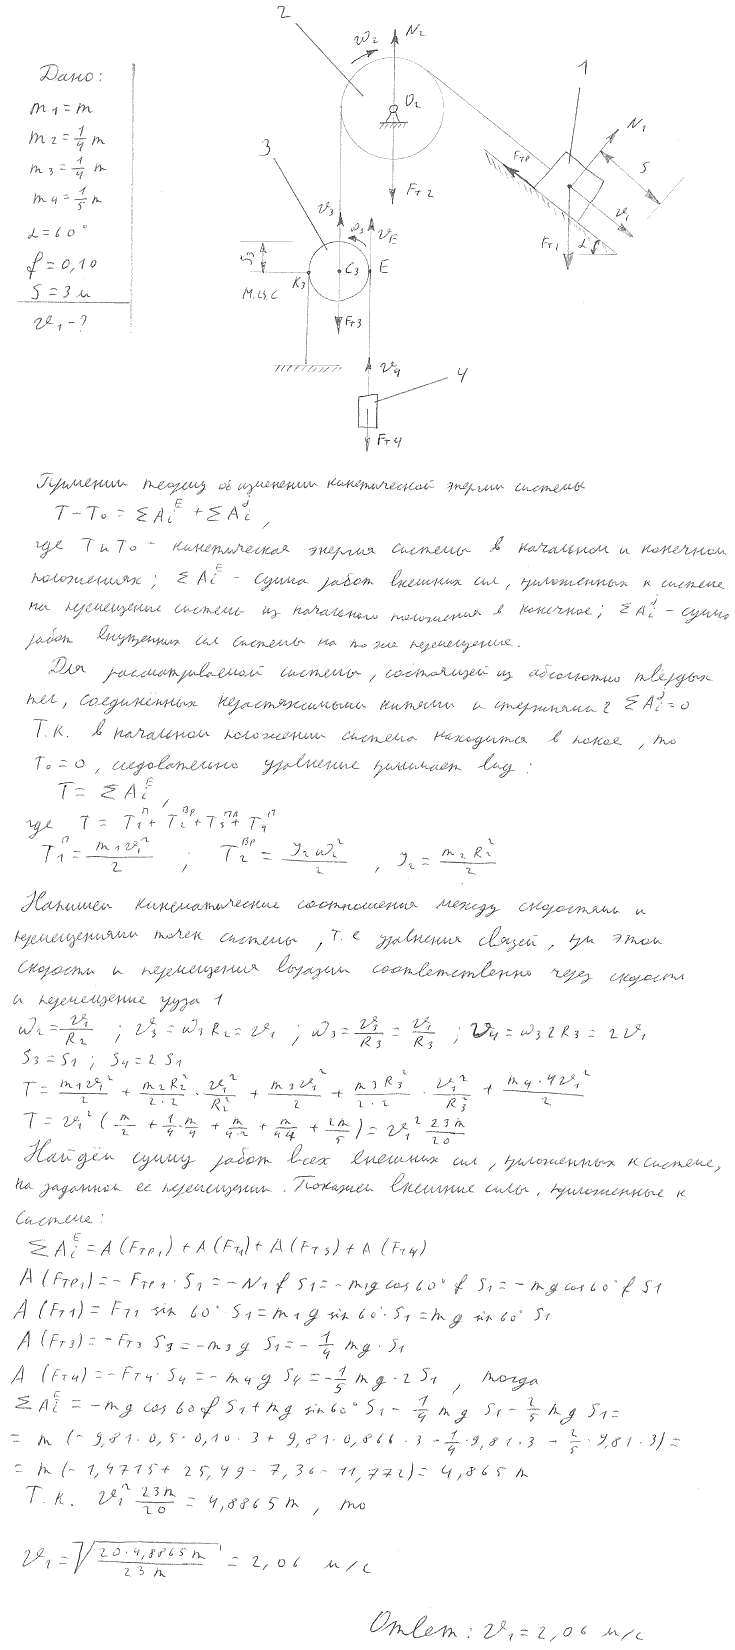 Дано:
m₁ = m
m₂ = 1/4 m
m₃ = 1/4 m
m₄ = 1/5 m
α = 60°
f = 0,10
S = 3 м
v₁ - ?
2
ω₂
N₂
O₂
Fт2
1
N₁
S
Fтр
v₁
Fт1
α
3
v₃
ω₃
vE
S₃
K₃
C₃
E
М.ц.с
Fт3
v₄
4
Fт4
Применим теорему об изменении кинетической энергии системы
T - T₀ = ΣAᵢᴱ + ΣAᵢᴶ,
где T и T₀ - кинетическая энергия системы в начальном и конечном
положениях; ΣAᵢᴱ - сумма работ внешних сил, приложенных к системе
на перемещение системы из начального положения в конечное; ΣAᵢᴶ - сумма
работ внутренних сил системы на то же перемещение.
Для рассматриваемой системы, состоящей из абсолютно твёрдых
тел, соединённых нерастяжимыми нитями и стержнями ΣAᵢᴶ = 0
Т.к. в начальном положении система находится в покое, то
T₀ = 0, следовательно уравнение принимает вид:
T = ΣAᵢᴱ,
где T = T₁ᴾ + T₂ᴮᴾ + T₃ᴾᴫ + T₄ᴾ
T₁ᴾ = m₁v₁²/2 ; T₂ᴮᴾ = J₂ω₂²/2 , J₂ = m₂R₂²/2
Напишем кинематические соотношения между скоростями и
перемещениями точек системы, т.е уравнения связей, при этом
скорости и перемещения выразим соответственно через скорость
и перемещение груза 1
ω₂ = v₁/R₂ ; v₃ = ω₂R₂ = v₁ ; ω₃ = v₃/R₃ = v₁/R₃ ; v₄ = ω₃2R₃ = 2v₁
S₃ = S₁ ; S₄ = 2S₁
T = m₁v₁²/2 + m₂R₂²/2·2 · v₁²/R₂² + m₃v₁²/2 + m₃R₃²/2·2 · v₁²/R₃² + m₄·4v₁²/2
T = v₁² (m/2 + 1/4·m/4 + m/4·2 + m/4·4 + 2m/5) = v₁² 23m/20
Найдём сумму работ всех внешних сил, приложенных к системе,
на заданном ее перемещении. Покажем внешние силы, приложенные к
системе:
ΣAᵢᴱ = A(Fтр₁) + A(Fт1) + A(Fт3) + A(Fт4)
A(Fтр₁) = -Fтр₁·S₁ = -N₁ f S₁ = -m₁g cos 60° f S₁ = -mg cos 60° f S₁
A(Fт1) = Fт1 sin 60°·S₁ = m₁g sin 60°·S₁ = mg sin 60° S₁
A(Fт3) = -Fт3 S₃ = -m₃g S₁ = -1/4 mg·S₁
A(Fт4) = -Fт4·S₄ = -m₄g S₄ = -1/5 mg·2S₁, тогда
ΣAᵢᴱ = -mg cos 60 f S₁ + mg sin 60° S₁ - 1/4 mg S₁ - 2/5 mg S₁ =
= m (-9,81·0,5·0,10·3 + 9,81·0,866·3 - 1/4·9,81·3 - 2/5·9,81·3) =
= m (-1,4715 + 25,49 - 7,36 - 11,772) = 4,865 m
Т.к. v₁² 23m/20 = 4,8865 m, то
v₁ = √(20·4,8865 m/23 m) = 2,06 м/с
Ответ: v₁ = 2,06 м/с